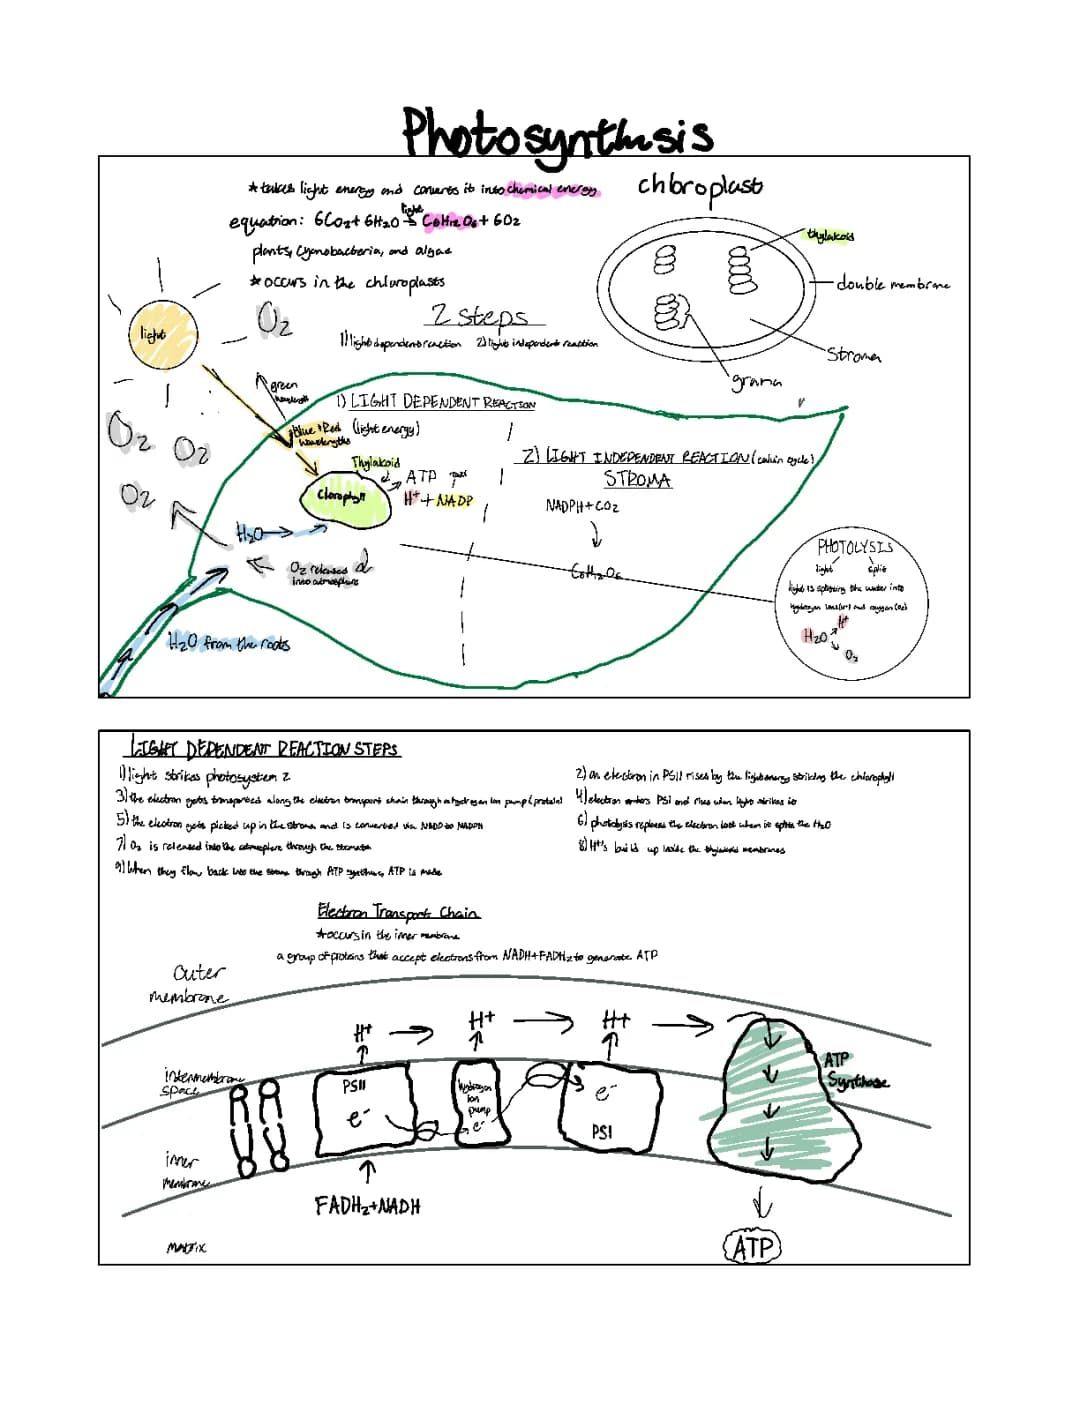 Photosynthesis
*takes light energy and converts it into chemical energy
equation: 6CO2 + 6H2O light → C6H12O6 + 6O2
plants, cyanobacteria, and algae
*occurs in the chloroplasts
chloroplast
thylakoid
double membrane
Stroma
grana
2 steps
1) light dependent reaction 2) light independent reaction
light
O2
O2
O2
O2
green
wavelength
1) LIGHT DEPENDENT REACTION
Blue + Red (light energy)
wavelengths
Thylakoid
ATP
H+ + NADP
H2O
O2 released
into atmosphere
H2O from the roots
2) LIGHT INDEPENDENT REACTION (calvin cycle)
STROMA
NADPH + CO2
C6H12O6
PHOTOLYSIS
light split
light is splitting the water into
hydrogen ions (H+) and oxygen (O2)
H2O H+
O2
LIGHT DEPENDENT REACTION STEPS
1) light strikes photosystem 2
2) an electron in PSII rises by the light energy striking the chlorophyll
3) the electron gets transported along the electron transport chain through a hydrogen ion pump (protein)
4) electron enters PSI and rises when light strikes it
5) the electron gets picked up in the stroma and is converted via NADP to NADPH
6) photolysis replaces the electron lost when it splits the H2O
7) O2 is released into the atmosphere through the stomata
8) H+'s build up inside the thylakoid membranes
9) When they flow back into the stroma through ATP synthase, ATP is made
Electron Transport Chain
*occurs in the inner membrane
a group of proteins that accept electrons from NADH + FADH2 to generate ATP
Outer
membrane
H+ H+ H+
intermembrane
space
PSII
e-
hydrogen
ion
pump
e-
e-
PSI
ATP
Synthase
inner
membrane
FADH2 + NADH
matrix
ATP